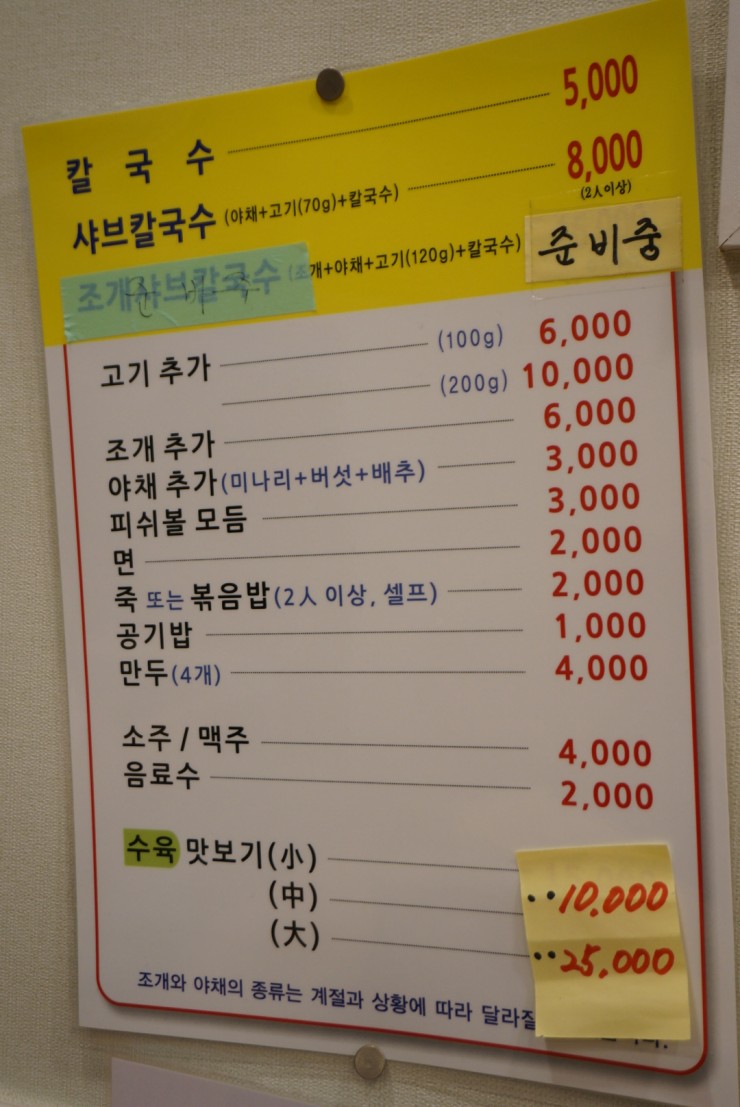 칼국수 5,000
샤브칼국수 (야채+고기(70g)+칼국수) 8,000
(2人이상)
조개샤브칼국수 (조개+야채+고기(120g)+칼국수) 준비중
고기 추가 (100g) 6,000
(200g) 10,000
조개 추가 6,000
야채 추가(미나리+버섯+배추) 3,000
피쉬볼 모듬 3,000
면 2,000
죽 또는 볶음밥(2人 이상, 셀프) 2,000
공기밥 1,000
만두(4개) 4,000
소주 / 맥주 4,000
음료수 2,000
수육 맛보기(小)
(中) 10,000
(大) 25,000
조개와 야채의 종류는 계절과 상황에 따라 달라질